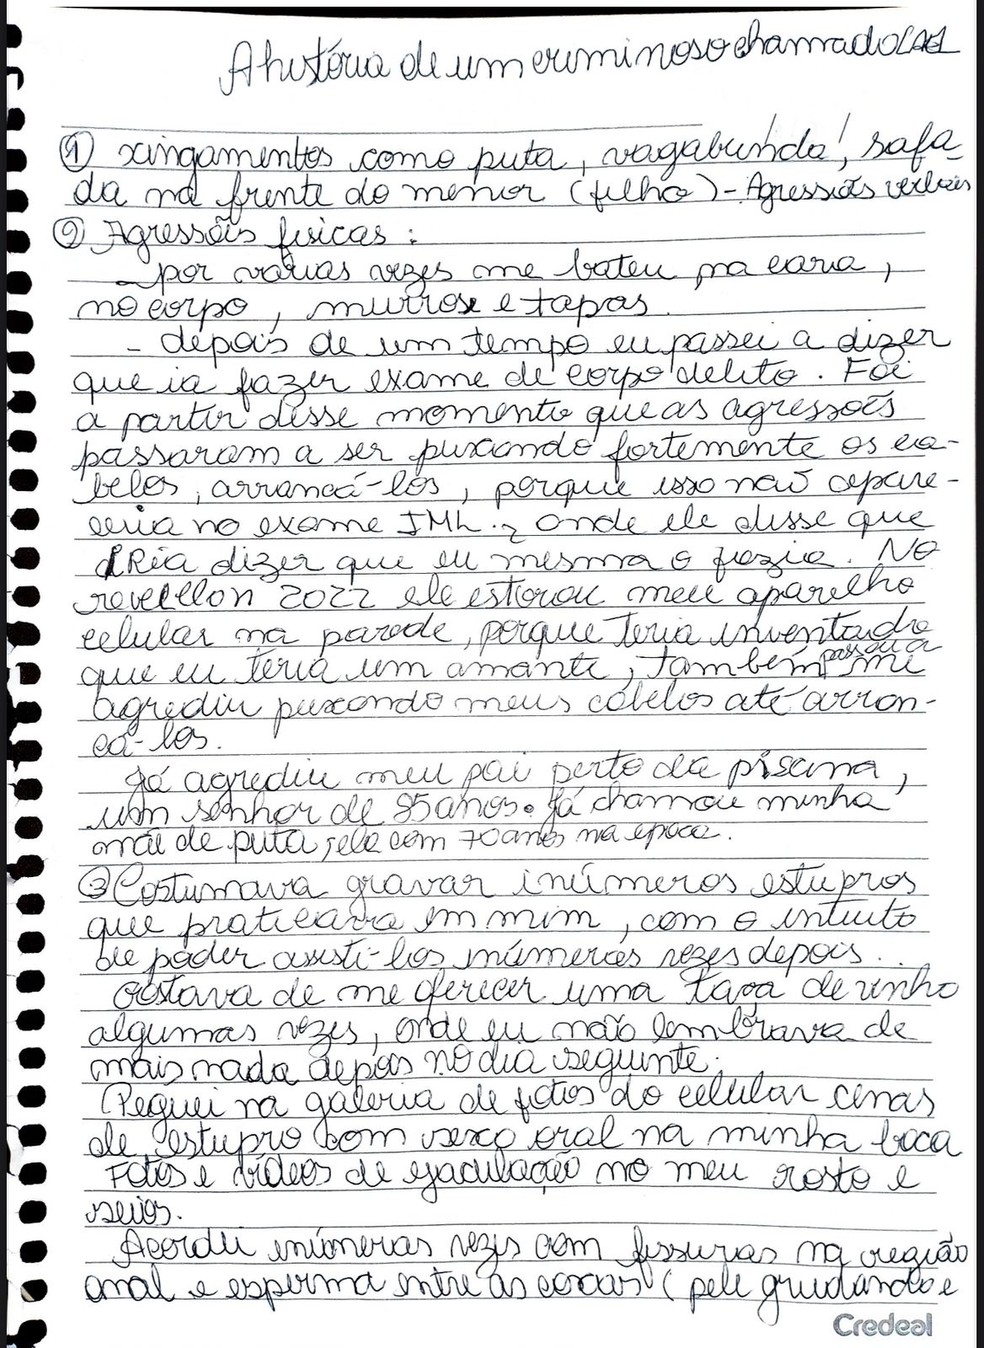 A história de um criminoso chamado
① xingamentos como puta, vagabunda, safa-
da na frente do menor (filho) - Agressões verbais
② Agressões físicas:
- por várias vezes me bateu na cara,
no corpo, murros e tapas.
- depois de um tempo eu passei a dizer
que ia fazer exame de corpo delito. Foi
a partir desse momento que as agressões
passaram a ser puxando fortemente os ca-
belos, arrancá-los, porque isso não apare-
ceria no exame IML., onde ele disse que
iRia dizer que eu mesma o fazia. No
reveellon 2022 ele estorou meu aparelho
celular na parede, porque teria inventado
que eu teria um amante, também passou a me
agrediu puxando meus cabelos até arran-
cá-los.
Já agrediu meu pai perto da piscina,
um senhor de 85 anos. Já chamou minha
mãe de puta, ela com 70 anos na época.
③ Costumava gravar inúmeros estupros
que praticava em mim, com o intuito
de poder assisti-los inúmeras vezes depois..
Gostava de me oferecer uma taça de vinho
algumas vezes, onde eu não lembrava de
mais nada depois no dia seguinte.
Peguei na galeria de fotos do celular cenas
de estupro com sexo oral na minha boca
Fotos e vídeos de ejaculação no meu rosto e
seios.
Acordei inúmeras vezes com fissuras na região
anal e esperma entre as coxas (pele grudando e
Credeal